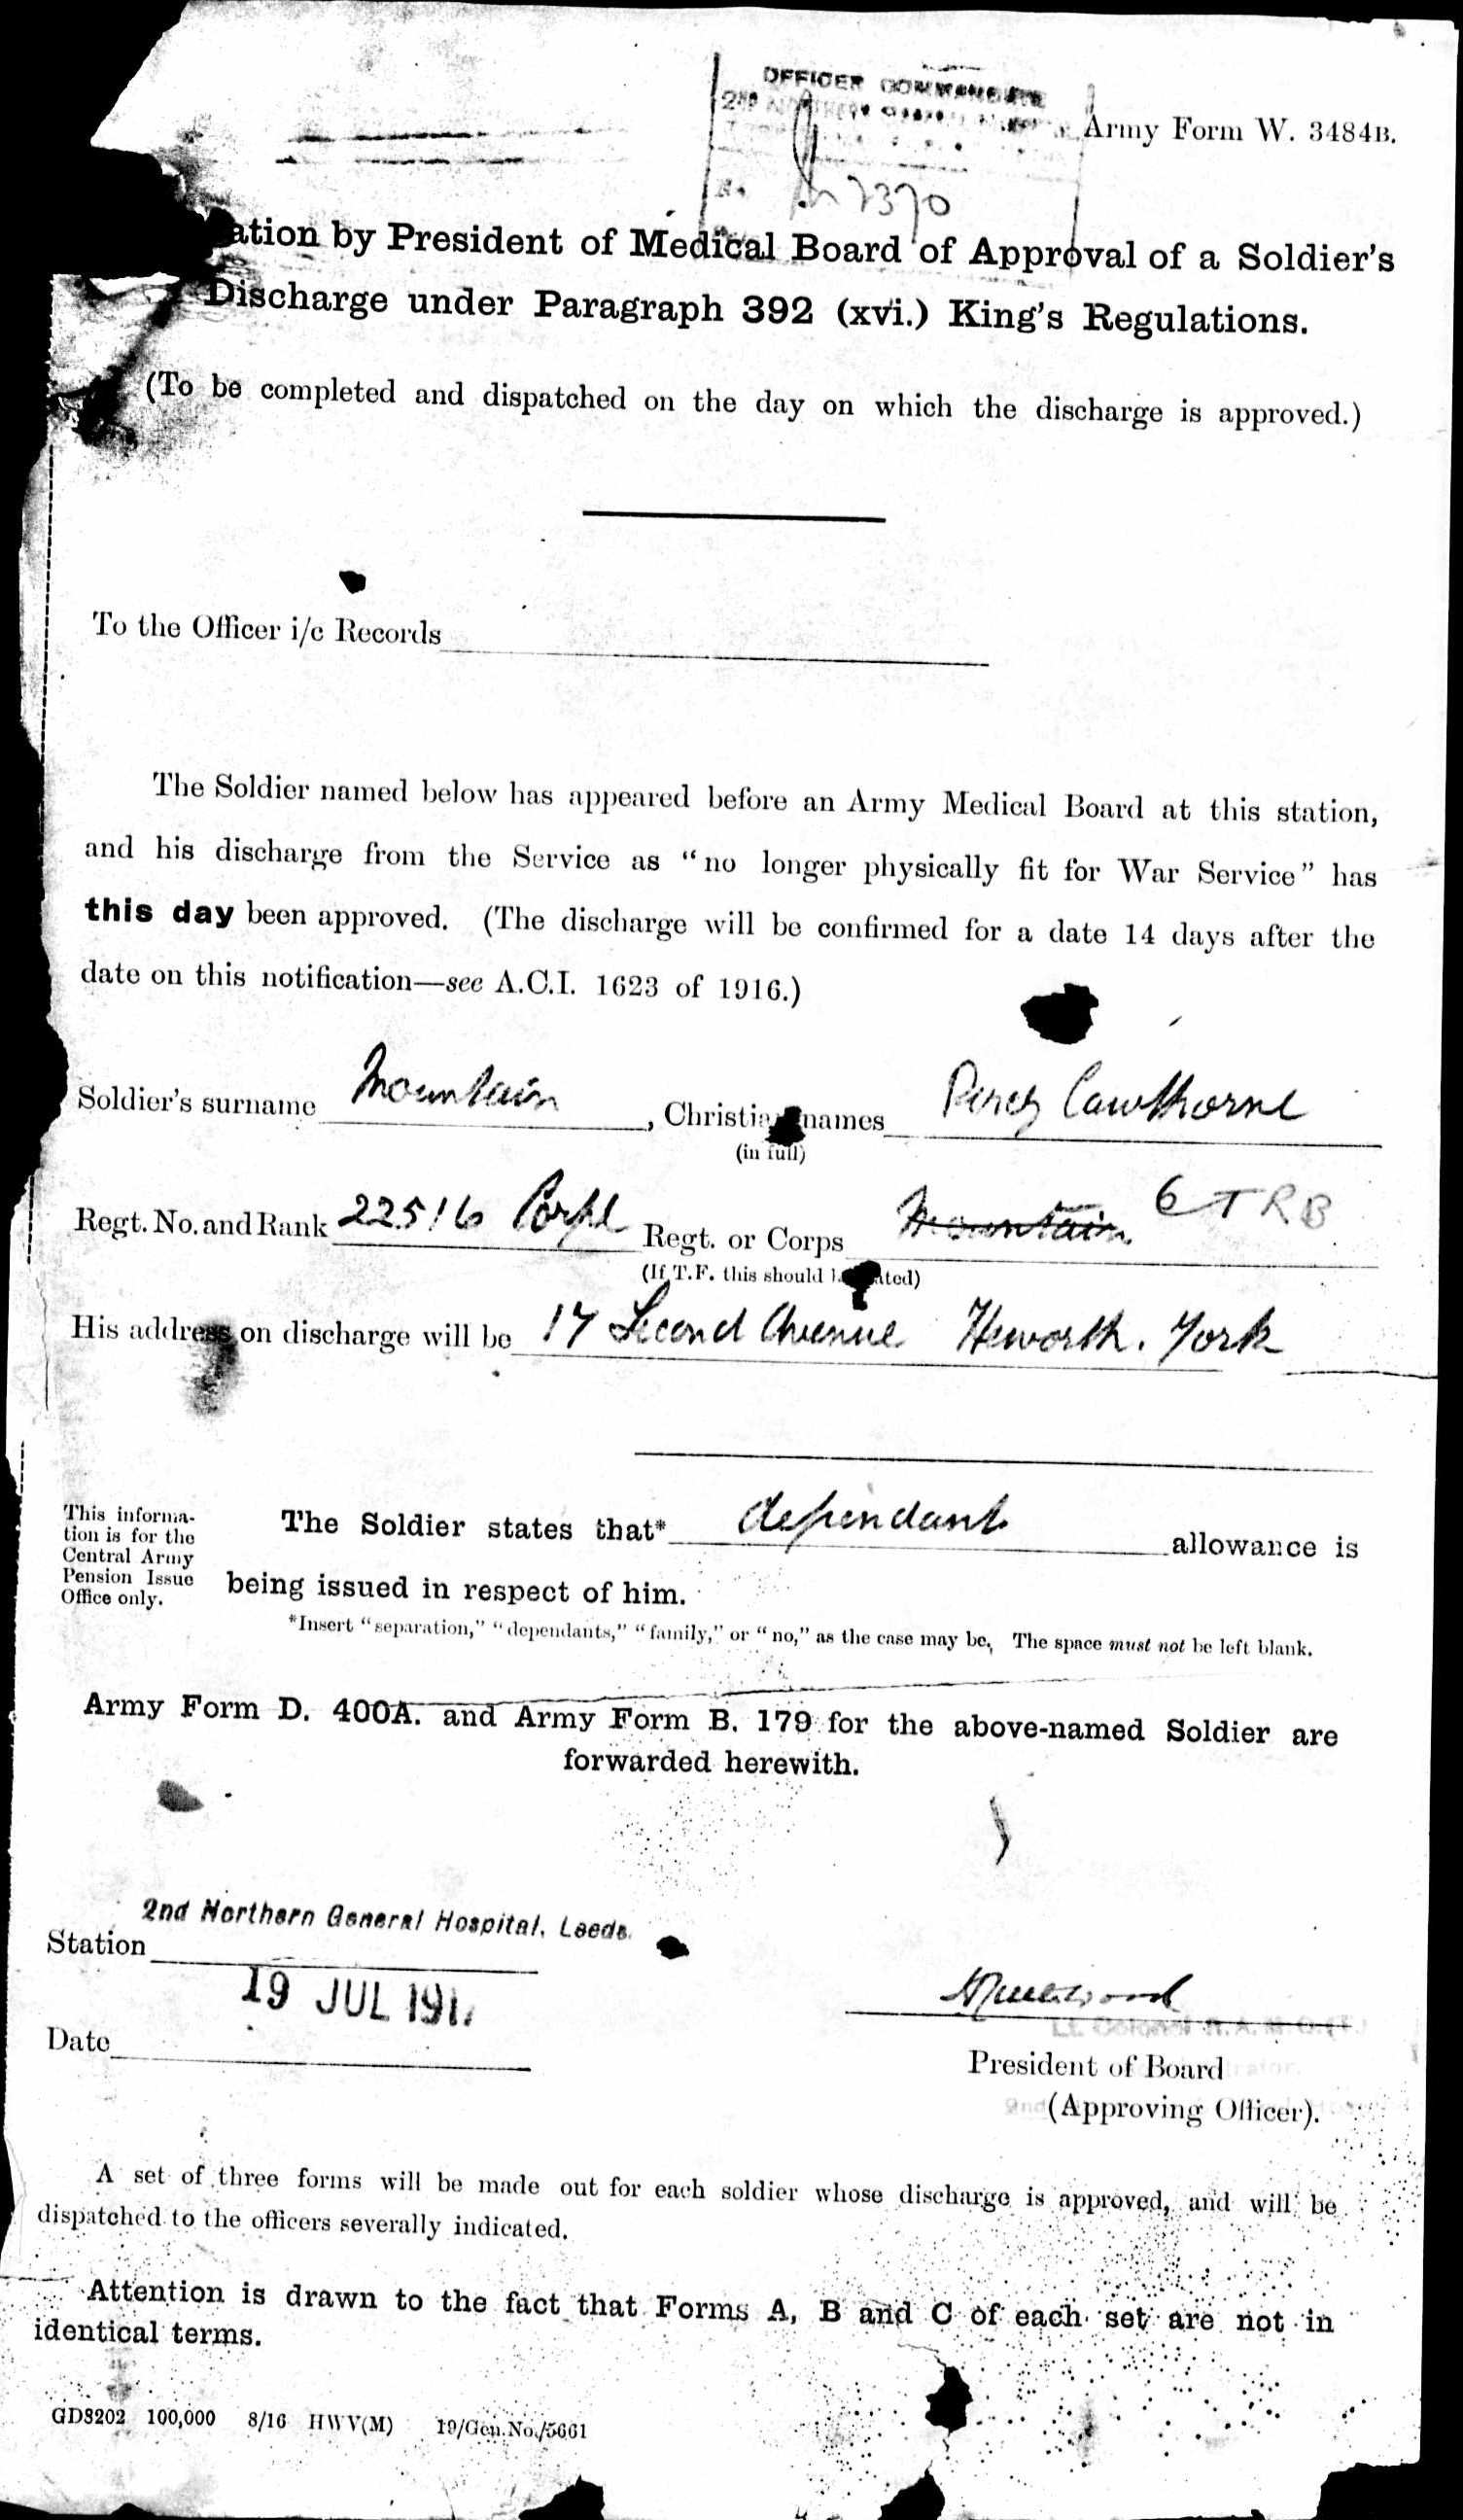 OFFICER COMMANDING
2ND NORTHERN GENERAL
Army Form W. 3484B.
2370
ation by President of Medical Board of Approval of a Soldier's
Discharge under Paragraph 392 (xvi.) King's Regulations.
(To be completed and dispatched on the day on which the discharge is approved.)
To the Officer i/c Records
The Soldier named below has appeared before an Army Medical Board at this station,
and his discharge from the Service as "no longer physically fit for War Service" has
this day been approved. (The discharge will be confirmed for a date 14 days after the
date on this notification—see A.C.I. 1623 of 1916.)
Soldier's surname Mountain, Christian names Percy Cawthorne
(in full)
Regt. No. and Rank 22516 Corpl Regt. or Corps Mountain 6 TRB
(If T.F. this should be stated)
His address on discharge will be 17 Second Avenue Heworth. York
This informa-
tion is for the
Central Army
Pension Issue
Office only.
The Soldier states that* dependant allowance is
being issued in respect of him.
*Insert "separation," "dependants," "family," or "no," as the case may be. The space must not be left blank.
Army Form D. 400A. and Army Form B. 179 for the above-named Soldier are
forwarded herewith.
2nd Northern General Hospital, Leeds.
Station
19 JUL 191
Date
Lt. Colonel R.A.M.C.(T.)
President of Board
(Approving Officer).
A set of three forms will be made out for each soldier whose discharge is approved, and will be
dispatched to the officers severally indicated.
Attention is drawn to the fact that Forms A, B and C of each set are not in
identical terms.
GD8202 100,000 8/16 HWV(M) 19/Gen.No./5661